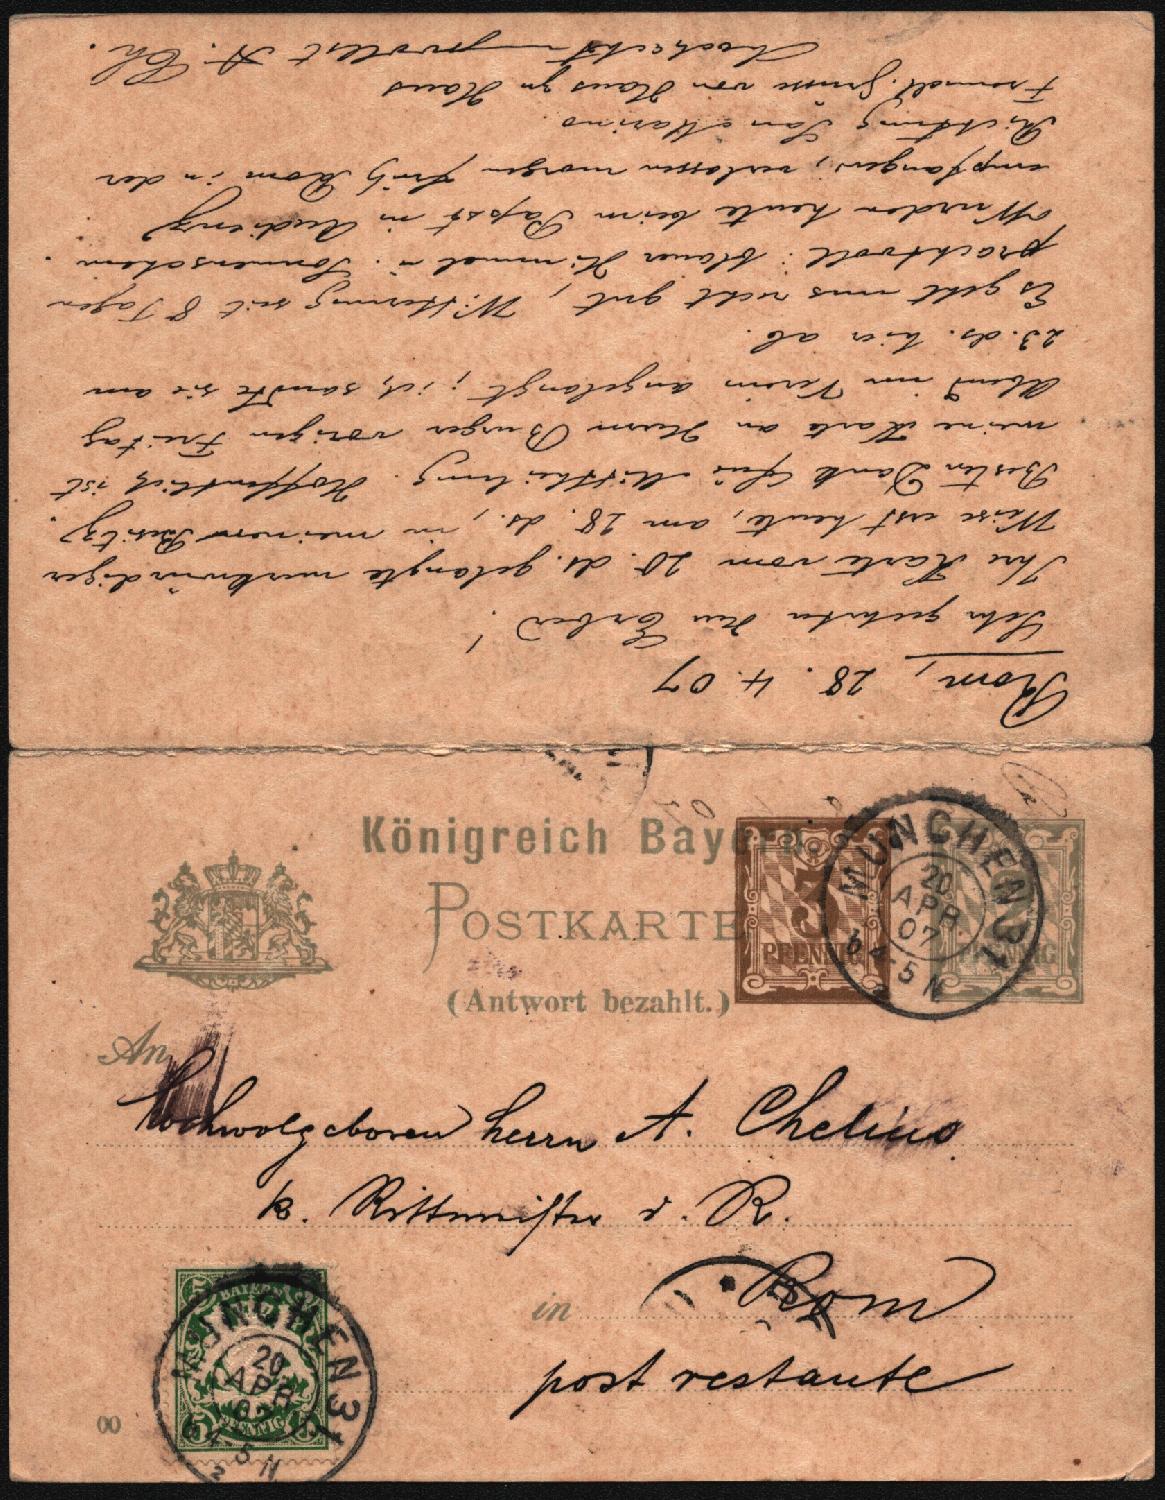 Rom, 28. 4. 07
Sehr geehrter Herr Erber!
Ihre Karte vom 20. ds. gelangte merkwürdiger
Weise erst heute, am 28. ds., in meinen Besitz.
Besten Dank für Mittheilung. Hoffentlich ist
meine Karte an Herrn Burger vorigen Freitag
Abend im Verein angelangt; ich sandte sie am
23. ds. hier ab.
Es geht uns recht gut, Witterung seit 8 Tagen
prachtvoll: blauer Himmel u. Sonnenschein.
Wurden heute beim Papst in Audienz
empfangen; verlassen morgen früh Rom in der
Richtung San Marino.
Freundl. Grüsse von Haus zu Haus
Hochachtungsvollst A. Ch.
Königreich Bayern
POSTKARTE
(Antwort bezahlt.)
3
PFENNIG
PFENNIG
MÜNCHEN 31
20
APR
07
b 4-5 N
An
Hochwolgeboren Herrn A. Chelius
k. Rittmeister d. R.
in Rom
post restante
BAYERN
5 5
PFENNIG
MÜNCHEN 31
20
APR
07
b 4-5 N
2
00